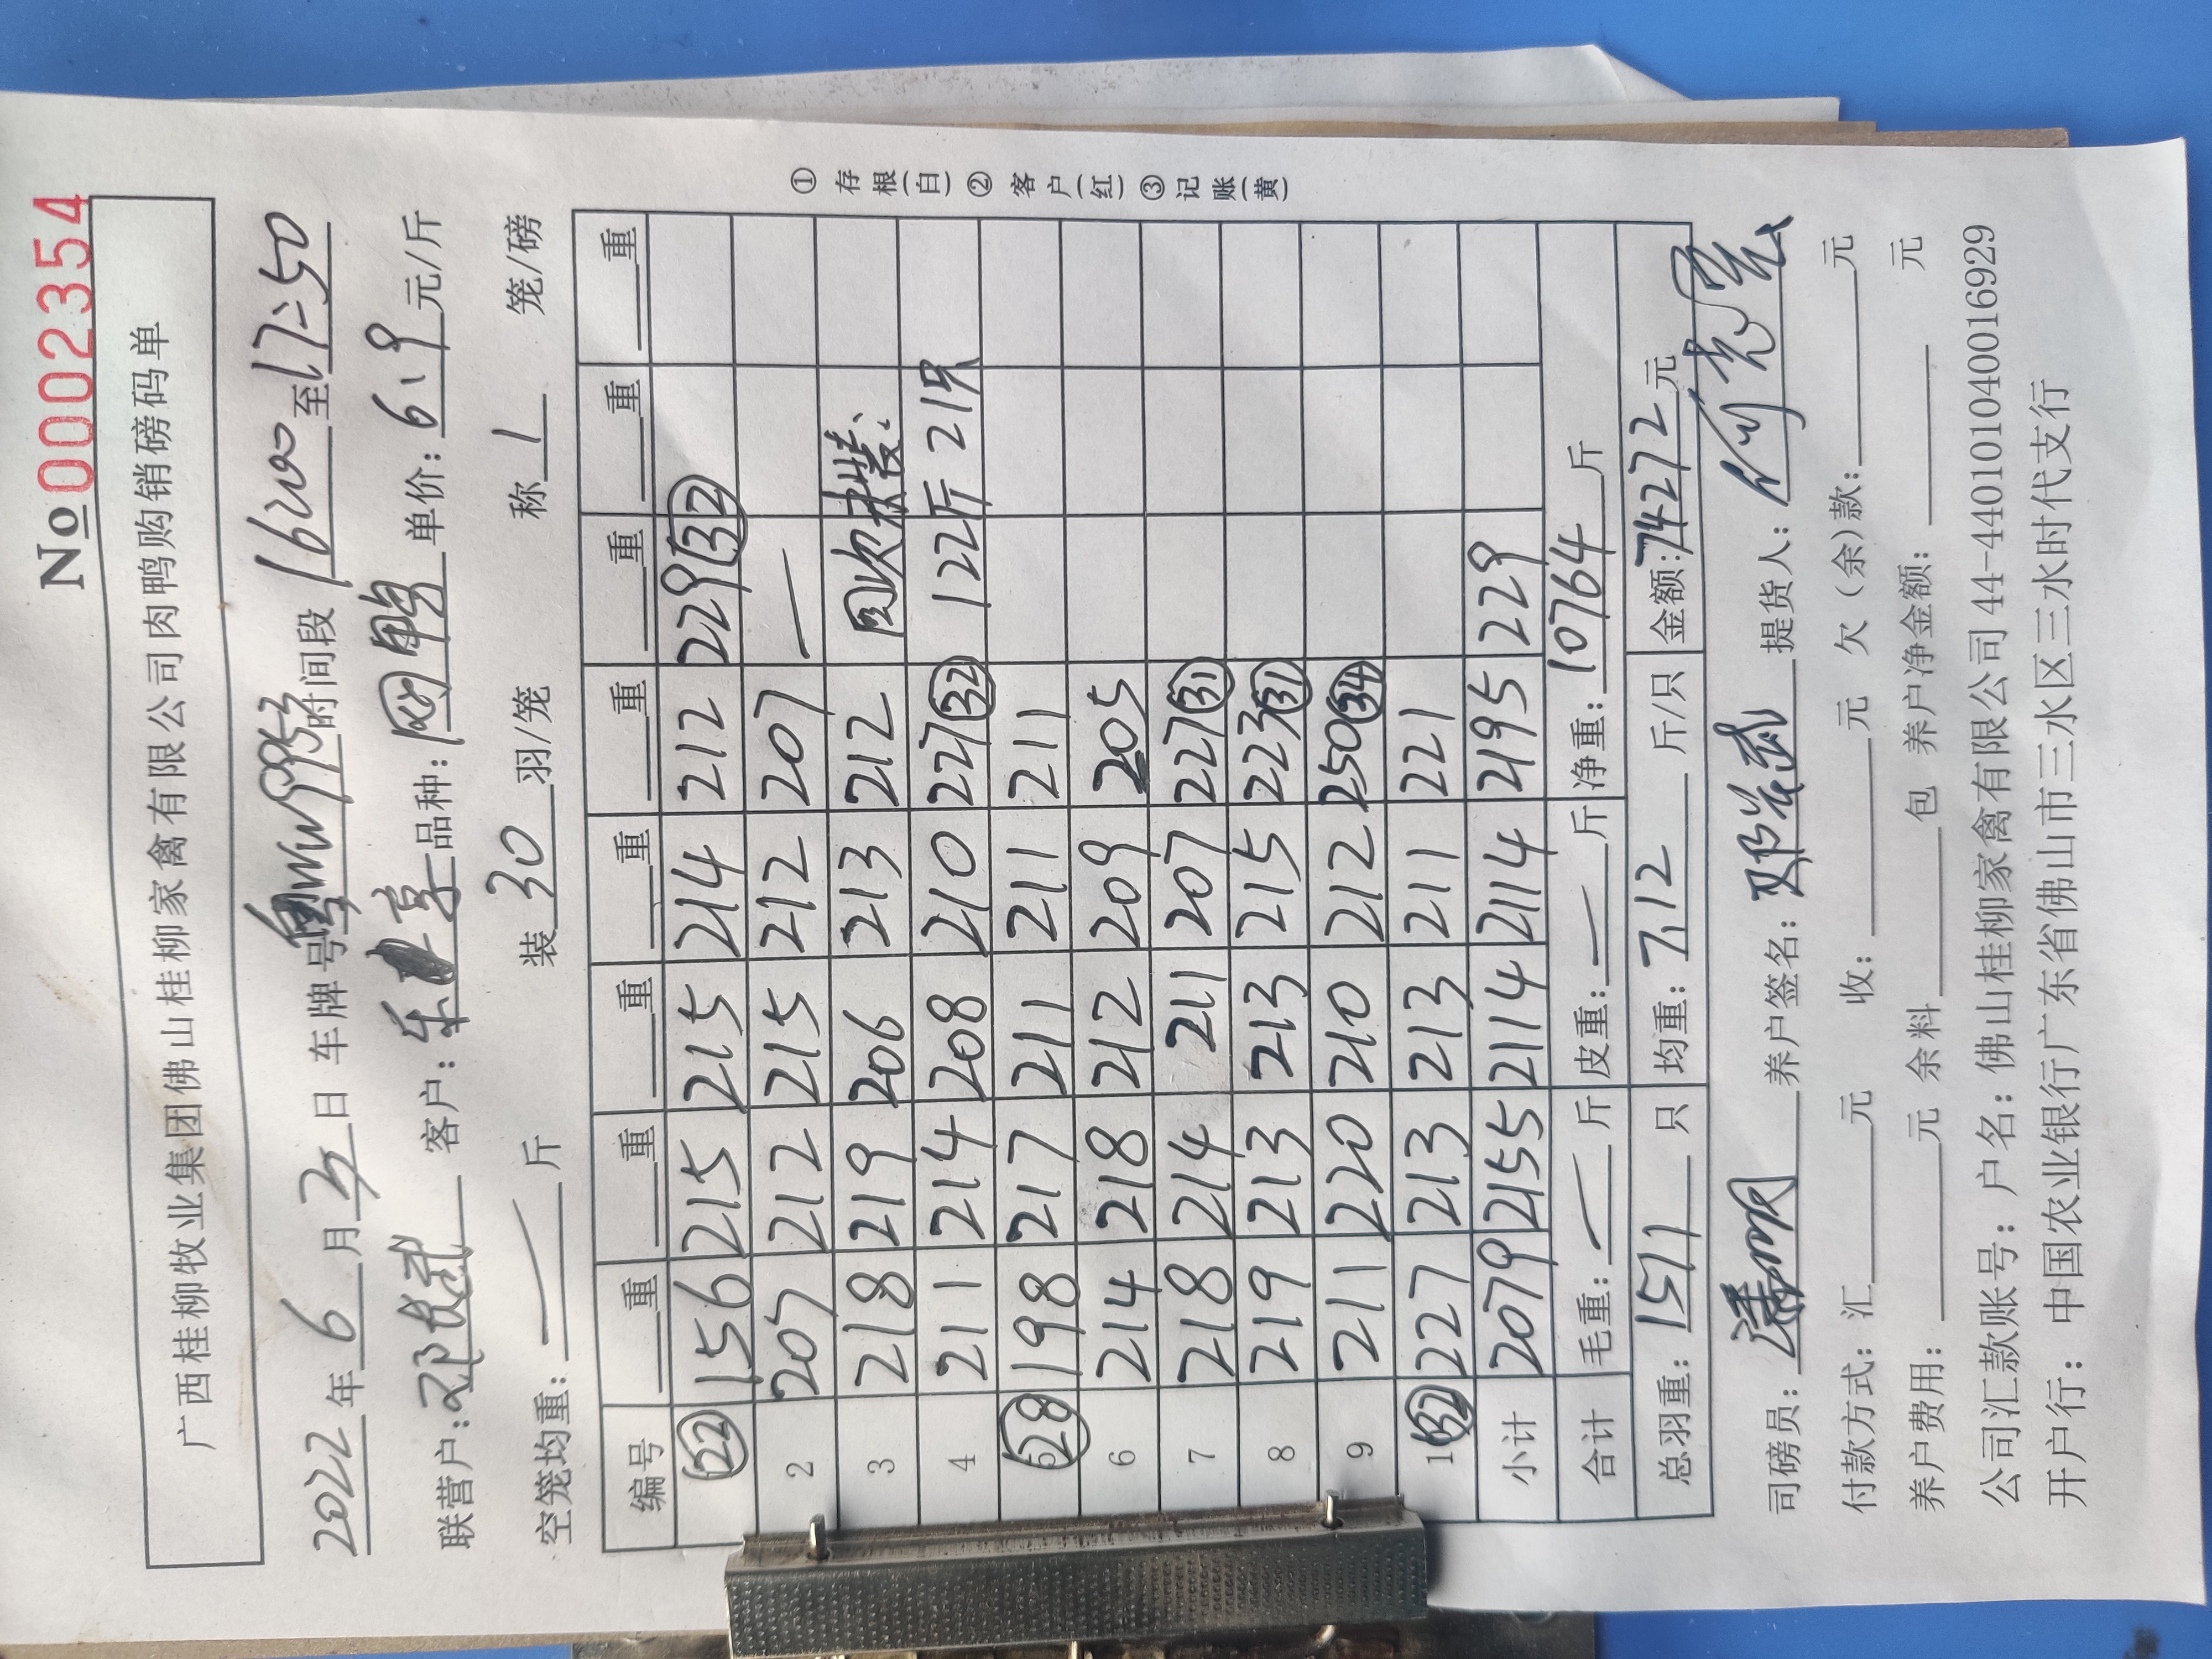 №0002354
广西桂柳牧业集团佛山桂柳家禽有限公司肉鸭购销磅码单
2022年6月3日 车牌号 W9953 时间段 16:00 至 17:50
联营户: 邓 客户: 东 享 品种: 网鸭 单价: 6.9 元/斤
空笼均重: 斤 装 30 羽/笼 称 1 笼/磅
编号 重 重 重 重 重 重 重 重
1 (22) 156 215 215 214 212 229 (32)
2 207 212 215 212 207 —
3 218 219 206 213 212 回次 装、
4 211 214 208 210 227 (32) 122斤 21只
5 (28) 198 217 211 211 211
6 214 218 212 209 205
7 218 214 211 207 227 (31)
8 219 213 213 215 223 (31)
9 211 220 210 212 250 (34)
10 (32) 227 213 213 211 221
小计 2079 2155 2114 2114 2195 229
合计 毛重: — 斤 皮重: — 斤 净重: 10764 斤
总羽重: 1511 只 均重: 7.12 斤/只 金额: 74272 元
司磅员: 养户签名: 提货人:
付款方式: 汇 元 收: 元 欠(余)款: 元
养户费用: 元 余料 包 养户净金额: 元
公司汇款账号: 户名: 佛山桂柳家禽有限公司 44-440101040016929
开户行: 中国农业银行广东省佛山市三水区三水时代支行
①存根(白)②客户(红)③记账(黄)